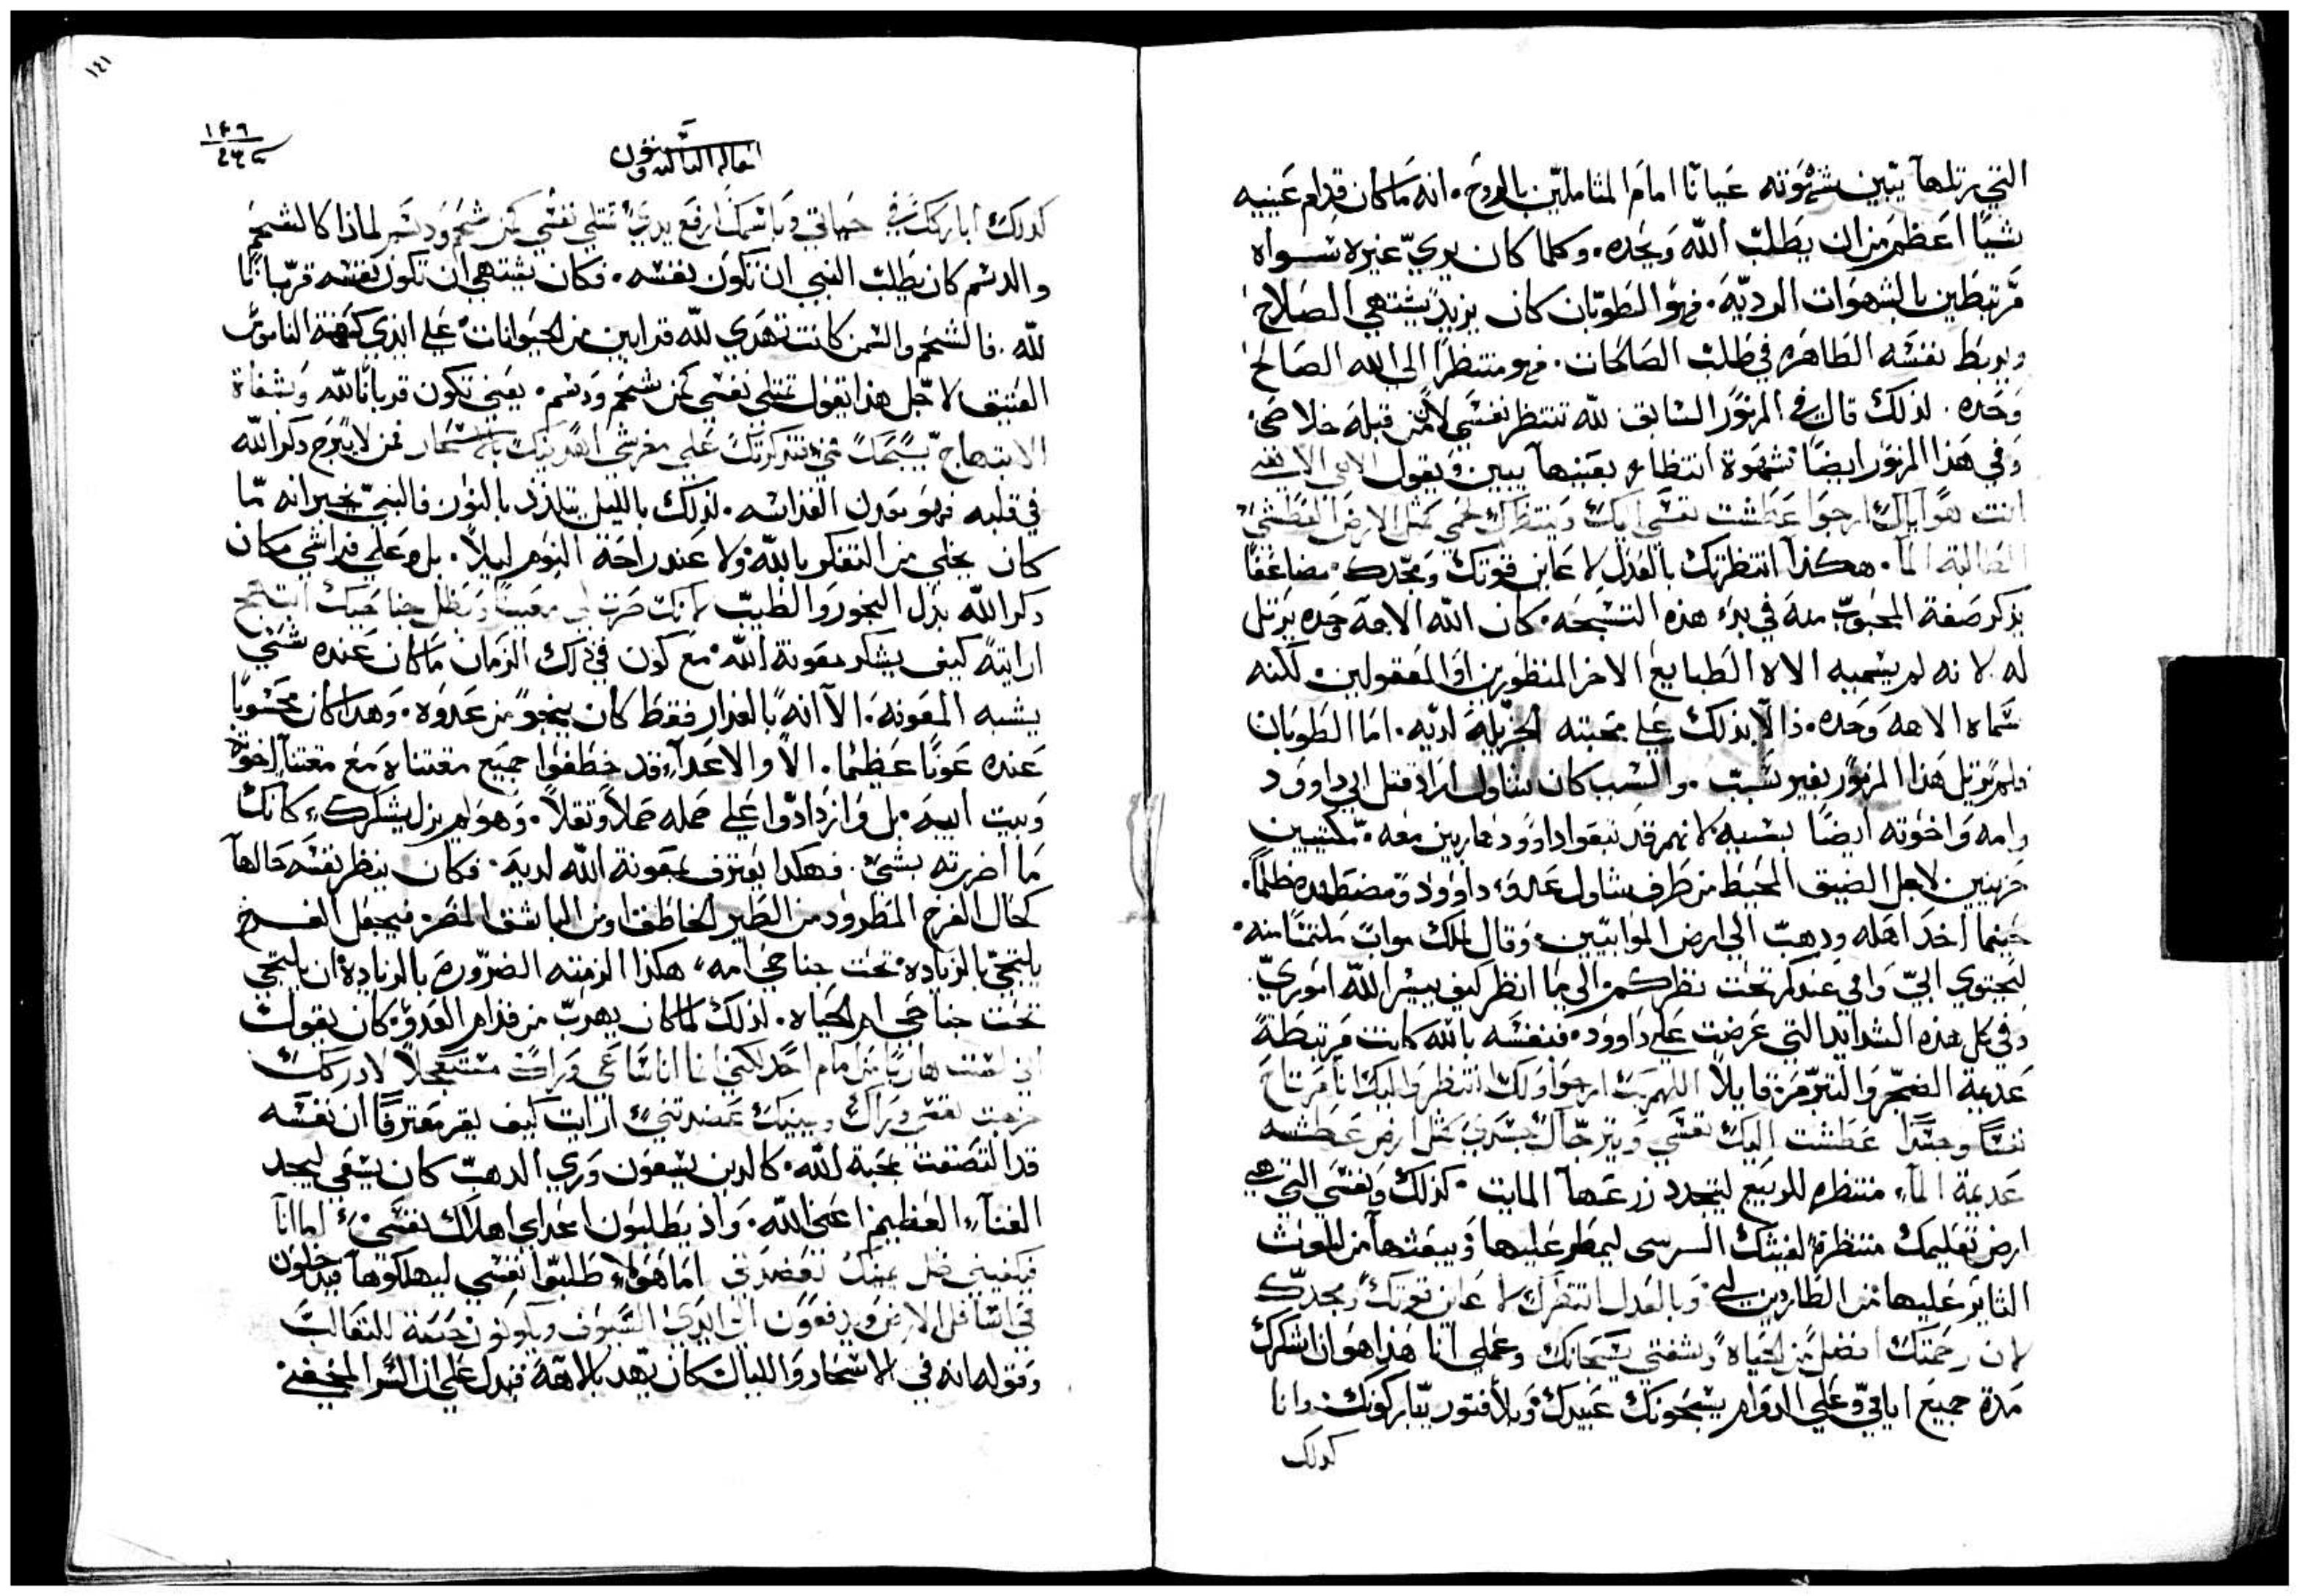 التي يرتلها يتبين شهوته عيانًا امام المتاملين بالروح. انه ما كان قدام عينيه
شيًا اعظم من ان يطلب الله وحده. وكلما كان يري غيره سواه
مرتبطين بالشهوات الرديّه. فهو الطوبان كان يزيد يشتهي الصلاح
ويربط نفسه الطاهره في طلب الصالحات. فهو منتظرًا الي الله الصالح
وحده. لذلك قال في المزمور السابق لله تنتظر نفسي لان من قبله خلاصي
وفي هذا المزمور ايضًا شهوة انتظاره بعينها يبين ويقول الاهي الاهي
انت هو اياك ارجوا عطشت نفسي اليك وينتظرك لحمي مثل الارض العطشي
الطالبة الما. هكذا انتظرتك بالعدل لاعاين قوتك ومجدك. مضاعفًا
يذكر صفة المحبوب منه في بدء هذه التسبحه. كان الله الاهه وحده يرتل
له لانه لم يسميه الاه الطبايع الاخر المنظورين او المعقولين لكنه
سماه الاهه وحده. دالًا بذلك علي محبته الجزيلة لديه. اما الطوبان
فلم يرتل هذا المزمور بغير سبب. والسبب كان شاول اراد قتل ابي داوود
وامه واخوته ايضًا بسببه لانهم قد تبعوا داوود هاربين معه. مكتيبين
حزينين لاجل الضيق المحيط من طرف شاول عدو داوود ومضطهده ظلمًا.
حينما اخد اهله ودهب الي ارض الموابيين وقال لملك مواب ملتمسًا منه.
ليحتوي ابي وامي عندكم تحت نظركم الي ما انظر كيف ييسر الله اموري
وفي كل هذه الشدايد التي عرضت علي داوود. فنفسه بالله كانت مرتبطة
عديمة الضجر والتزمر قايلًا اللهم رب ارجوا ولك انتظر واليك انا مرتاح
نفسًا وجسدًا عطشت اليك نفسي ويترجاك جسدي مثل ارض عطشه
عديمة الماء منتظره للربيع ليتجدد زرعها المايت. كذلك ونفسي التي هي
ارض تعليمك منتظرة لغيثك السري ليمطر عليها ويبعثها من الموت
الثاير عليها من الطاردين لي. وبالعدل انتظرك لاعاين قوتك ومجدك
لان رحمتك افضل من الحياه وشفتي يسبحانك وعملي انا هذا هو ان اشكرك
مدة جميع ايامي وعلي الدوام يسبحونك عبيدك وبلا فتور يباركونك وانا
كدلك
١٤١
١٤٦
كدلك اباركك في حياتي وباسمك ارفع يدي تمتلي نفسي كمن شحم ودسم لماذا كالشحم
والدسم كان يطلب النبي ان تكون نفسه. فكان يشتهي ان تكون نفسه قربانًا
لله. فالشحم والسمن كانت تهدي لله قرابين من الحيوانات علي ايدي كهنة الناموس
العتيق لاجل هذا يقول تمتلي نفسي كمن شحم ودسم. يعني تكون قربانًا لله وبشفاة
الابتهاج يسبحك فمي تذكرتك علي مفرشي اهد بك بالاسحار فمن لا يبرح دكر الله
في قلبه فهو بعدل الفراشه. لذلك بالليل يتلذذ بالنور فالنبي يخبر انه ما
كان يخلي من التفكر بالله ولا عند راحة النوم ليلًا. بل وعلي فراشي مكان
دكر الله بدل البخور والطيب لانك صرت لي معينًا وبظل جناحيك ابتهج
ارايته كيف يشكر معونة الله. مع كون في ذلك الزمان ما كان عنده شي
يشبه المعونه. الا انه بالفرار فقط كان ينجو من عدوه. وهدا كان محسوبًا
عنده عونًا عظيمًا. الا والاعداء قد خطفوا جميع مقتناه مع مقتنا اخوته
وبيت ابيه. بل وازدادوا علي حمله حملًا وثقلًا. وهو لم يزل يشكرك كانك
ما اضررته بشي. فهكدا يعترف بمعونة الله لديه. فكان ينظر نفسه حالها
كحال الفرخ المطرود من الطير الخاطف او من الباشق المضر. فيجعل الفرخ
يلتجي بالزياده تحت جناحي امه. هكذا الزمته الضروره بالزيادة ان يلتجي
تحت جناحي ام الحياه. لذلك لما كان يهرب من قدام العدو. كان يقول
اني لست هاربًا من امام احد لكني انا ساعي وراك مستعجلًا لادركك
لزمت نفسي وراك ويمينك عضدتني ارايت كيف يقر معترفًا ان نفسه
قد التصقت بمحبة الله. كالدين يسعون وري الدهب كان يسعي ليجد
الغناء العظيم اعني الله. واذ يطلبون اعداي اهلاك نفسي اما انا
فيكفيني ظل يمينك تعضدني اما هولاء طلبوا نفسي ليهلكوها فيدخلون
في اسافل الارض ويدفعون الي ايدي السيوف ويكونون حصة للثعالب
وقوله انه في الاسحار والليال كان يهد بالاهه فيدل علي ان السر المخفي